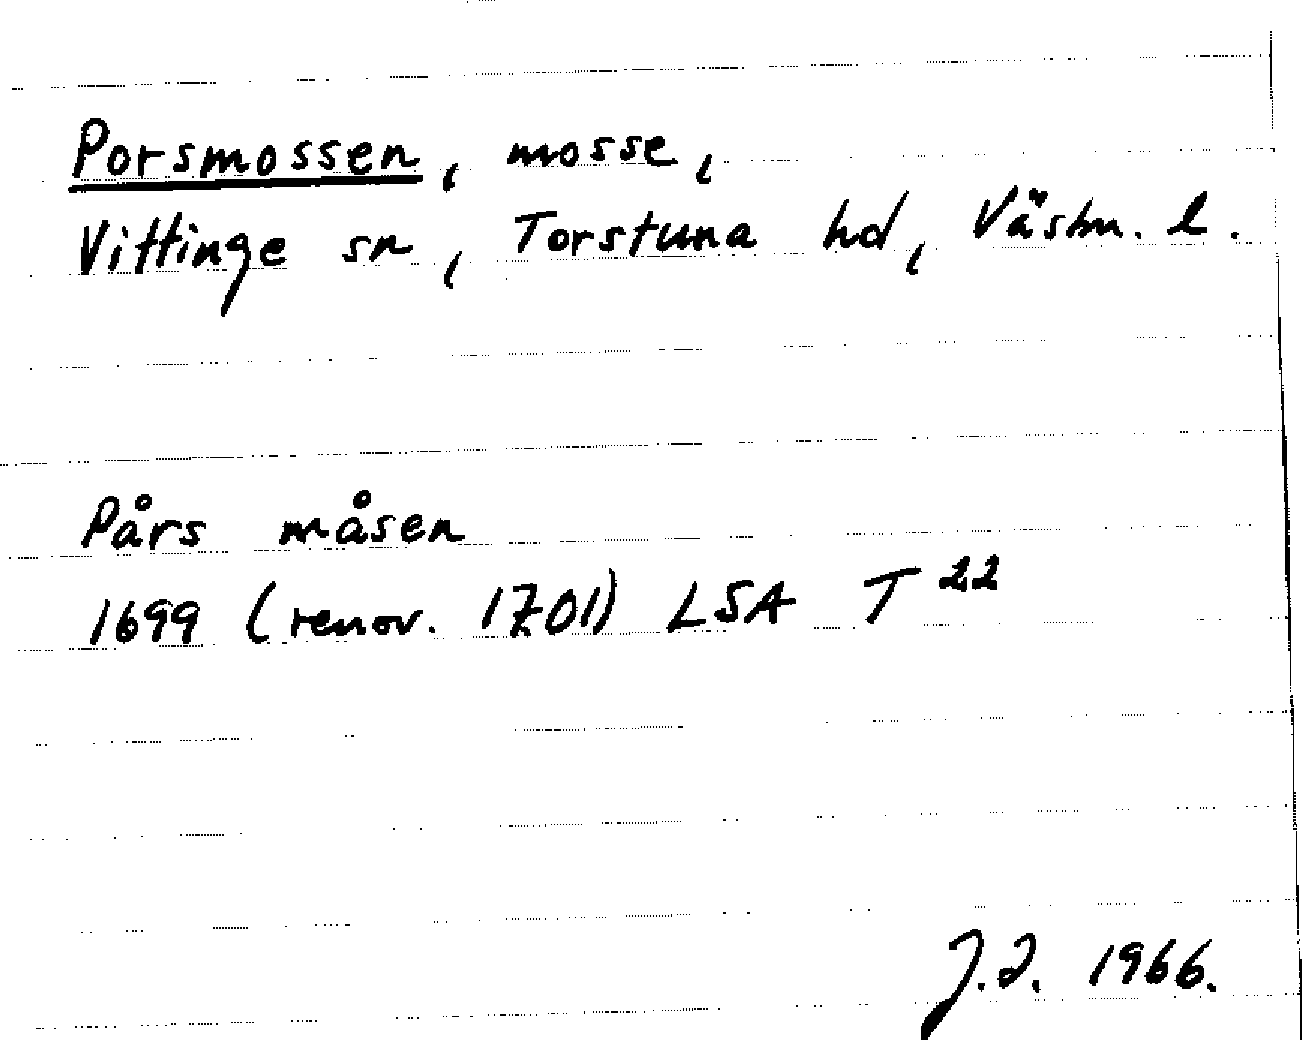 Porsmossen, mosse,
Vittinge sn, Torstuna hd, Västm. l.
Pårs måsen
1699 (renov. 1701) LSA T 22
J.I. 1966.